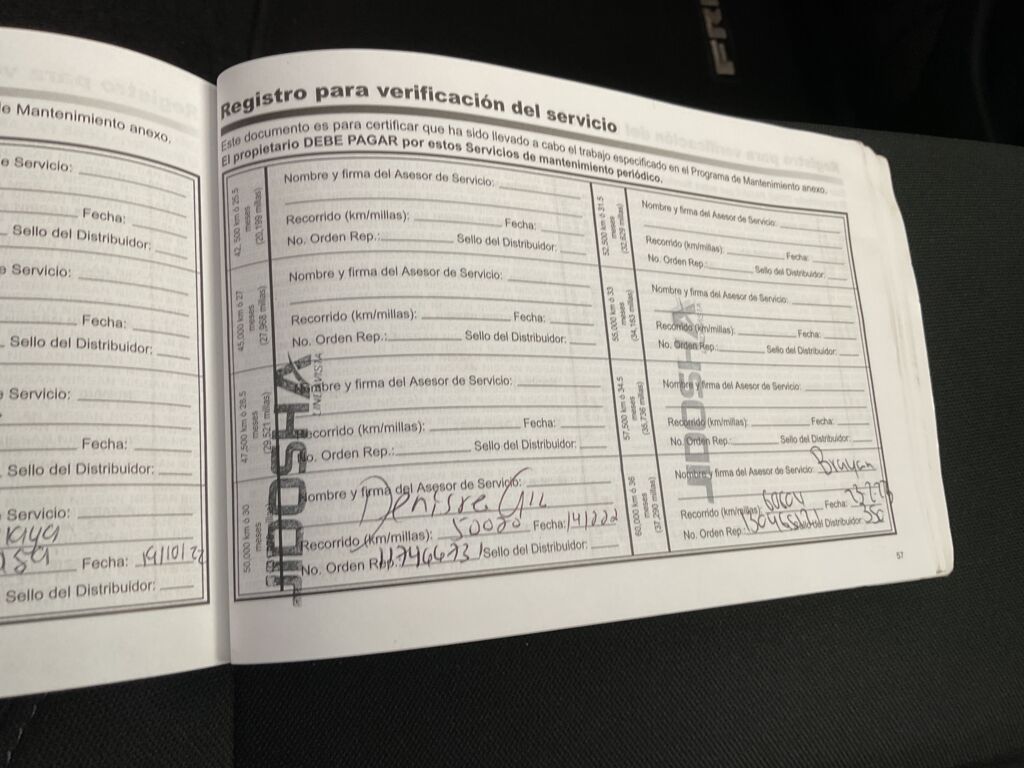 FRI
de Mantenimiento anexo.
Servicio:
Fecha:
Sello del Distribuidor:
Servicio:
Fecha:
Sello del Distribuidor:
Servicio:
Fecha:
Sello del Distribuidor:
Servicio:
Fecha: 19/10/22
Sello del Distribuidor:
Registro para verificación del servicio
Este documento es para certificar que ha sido llevado a cabo el trabajo especificado en el Programa de Mantenimiento anexo.
El propietario DEBE PAGAR por estos Servicios de mantenimiento periódico.
42,500 km ó 25.5
meses
(20,199 millas)
Nombre y firma del Asesor de Servicio:
Recorrido (km/millas): Fecha:
No. Orden Rep.: Sello del Distribuidor:
45,000 km ó 27
meses
(27,968 millas)
Nombre y firma del Asesor de Servicio:
Recorrido (km/millas): Fecha:
No. Orden Rep.: Sello del Distribuidor:
47,500 km ó 28.5
meses
(29,521 millas)
Nombre y firma del Asesor de Servicio:
Recorrido (km/millas): Fecha:
No. Orden Rep.: Sello del Distribuidor:
50,000 km ó 30
meses
Nombre y firma del Asesor de Servicio:
Denisse Gil
Recorrido (km/millas): 50080 Fecha:
No. Orden Rep. Sello del Distribuidor:
LINDAVISTA
52,500 km ó 31.5
meses
(32,629 millas)
Nombre y firma del Asesor de Servicio:
Recorrido (km/millas): Fecha:
No. Orden Rep.: Sello del Distribuidor:
55,000 km ó 33
meses
(34,183 millas)
Nombre y firma del Asesor de Servicio:
Recorrido (km/millas): Fecha:
No. Orden Rep.: Sello del Distribuidor:
57,500 km ó 34.5
meses
(35,736 millas)
Nombre y firma del Asesor de Servicio:
Recorrido (km/millas): Fecha:
No. Orden Rep.: Sello del Distribuidor:
60,000 km ó 36
meses
(37,290 millas)
Nombre y firma del Asesor de Servicio: Brayan
Recorrido (km/millas): Fecha:
No. Orden Rep.: Distribuidor: 350
57